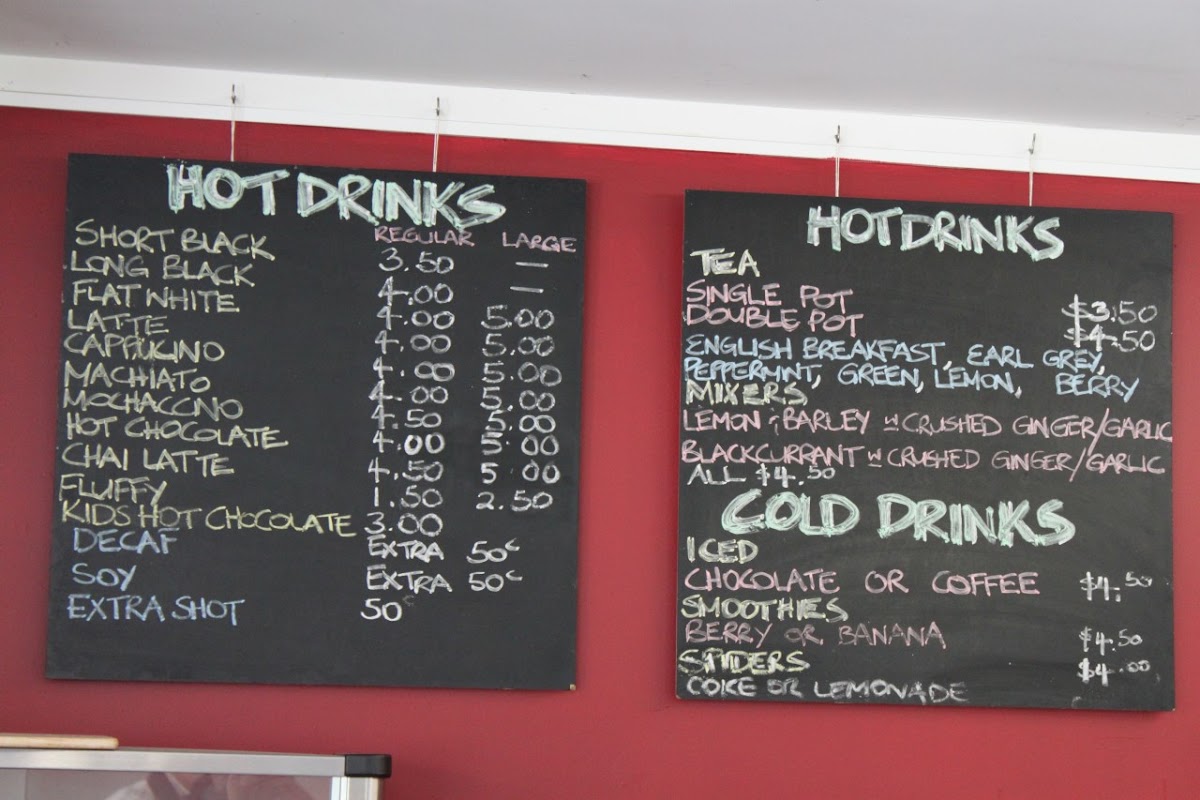 HOT DRINKS
REGULAR LARGE
SHORT BLACK 3.50 —
LONG BLACK 4.00 —
FLAT WHITE 4.00 5.00
LATTE 4.00 5.00
CAPPUCINO 4.00 5.00
MACHIATO 4.00 5.00
MOCHACCINO 4.50 5.00
HOT CHOCOLATE 4.00 5.00
CHAI LATTE 4.50 5.00
FLUFFY 1.50 2.50
KIDS HOT CHOCOLATE 3.00
DECAF EXTRA 50c
SOY EXTRA 50c
EXTRA SHOT 50c
HOT DRINKS
TEA
SINGLE POT $3.50
DOUBLE POT $4.50
ENGLISH BREAKFAST, EARL GREY,
PEPPERMINT, GREEN, LEMON, BERRY
MIXERS
LEMON & BARLEY w CRUSHED GINGER/GARLIC
BLACKCURRANT w CRUSHED GINGER/GARLIC
ALL $4.50
COLD DRINKS
ICED
CHOCOLATE OR COFFEE $4.50
SMOOTHIES
BERRY OR BANANA $4.50
SPIDERS $4.00
COKE OR LEMONADE